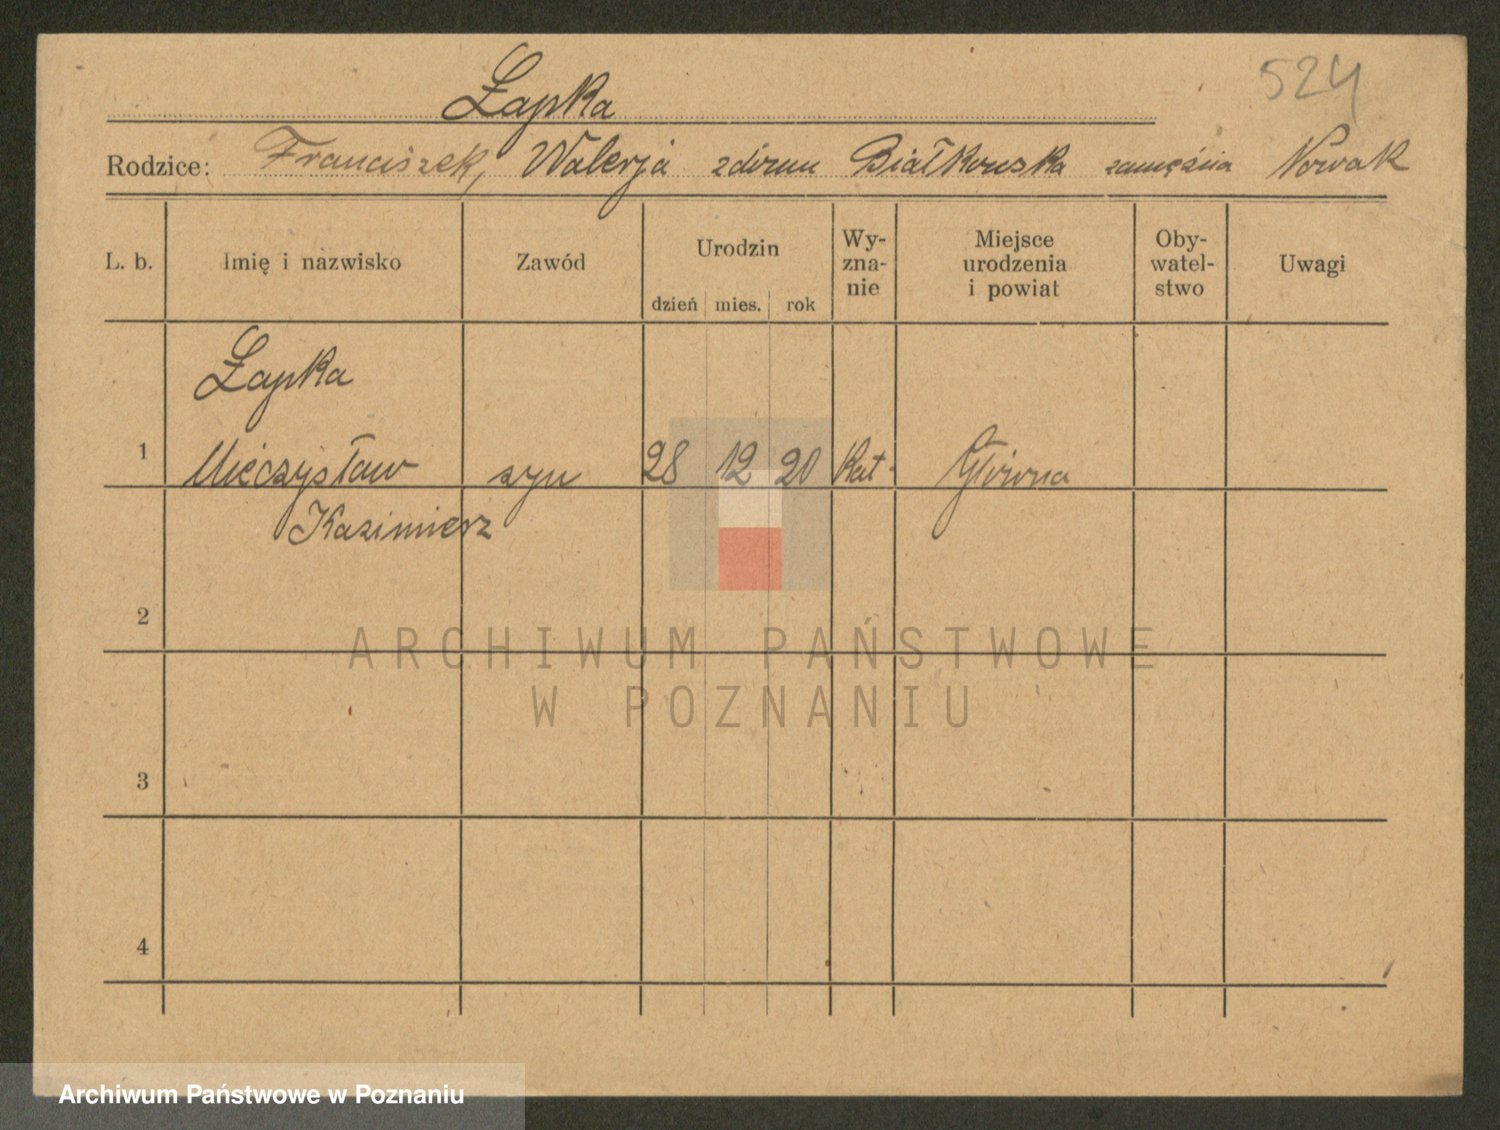 524
Łapka
Rodzice: Franciszek, Walerja zdomu Białkowska zamężna Nowak
L. b. Imię i nazwisko Zawód Urodzin dzień mies. rok Wy-zna-nie Miejsce urodzenia i powiat Oby-watel-stwo Uwagi
Łapka
1 Mieczysław syn 28 12 20 Kat. Główna
Kazimierz
2
ARCHIWUM PAŃSTWOWE
W POZNANIU
3
4
Archiwum Państwowe w Poznaniu